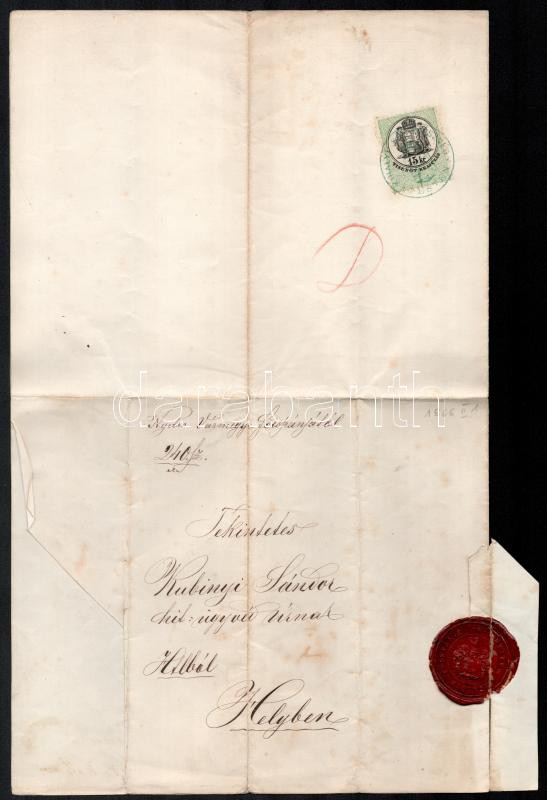 15 kr
D
darabanth
1866 II 1
Nyitra Vármegye Főispánjától
240. sz.
Tekintetes
Kubinyi Sándor
hit: ügyvéd úrnak
Htlból
Helyben